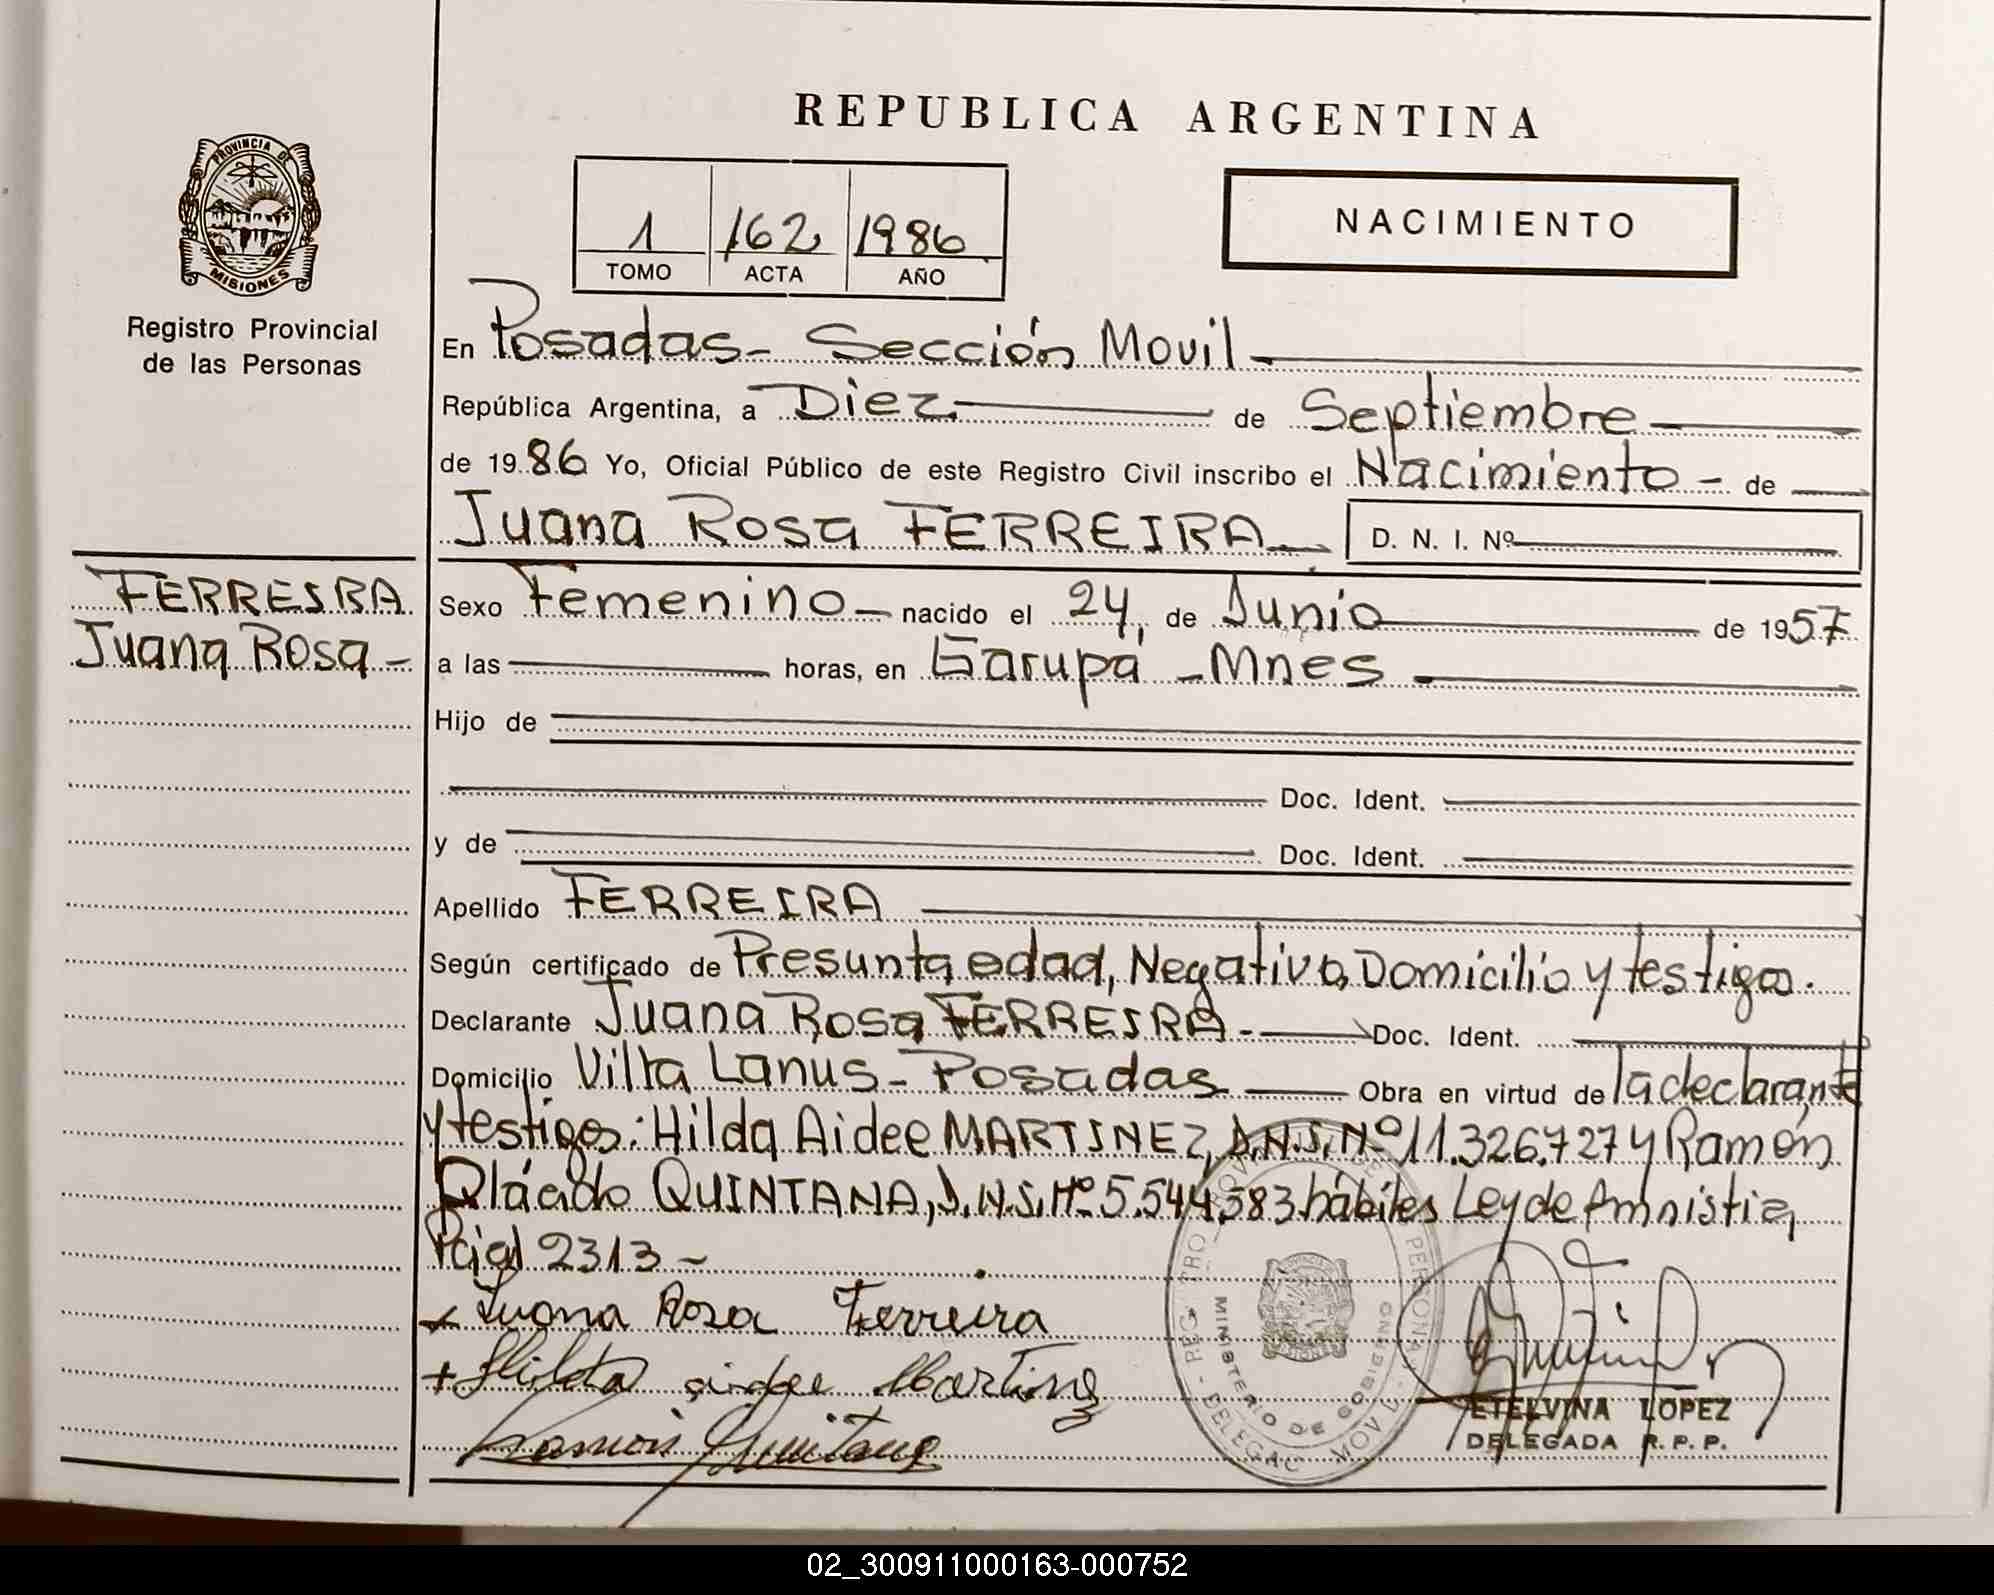 REPUBLICA ARGENTINA
PROVINCIA DE
MISIONES
Registro Provincial
de las Personas
1 162 1986
TOMO ACTA AÑO
NACIMIENTO
En Posadas - Sección Movil -
República Argentina, a Diez de Septiembre
de 1986 Yo, Oficial Público de este Registro Civil inscribo el Nacimiento - de
Juana Rosa FERREIRA D. N. I. Nº
FERREIRA
Juana Rosa -
Sexo Femenino - nacido el 24, de Junio de 1957
a las horas, en Garupá - Mnes
Hijo de
Doc. Ident.
y de Doc. Ident.
Apellido FERREIRA
Según certificado de Presunta edad, Negativo, Domicilio y testigos.
Declarante Juana Rosa FERREIRA - Doc. Ident.
Domicilio Villa Lanus - Posadas Obra en virtud de la declarante
y testigos: Hilda Aidee MARTINEZ, D.N.I. Nº 11.326.727 y Ramón
Plácido QUINTANA, D.N.I. Nº 5.544.583 hábiles Ley de Amnistia,
Pcial 2313 -
x Juana Rosa Ferreira
+ Hilda aidee Martinez
Ramon Quintana
MINISTERIO DE GOBIERNO
ETELVINA LOPEZ
DELEGADA R. P. P.
02_300911000163-000752